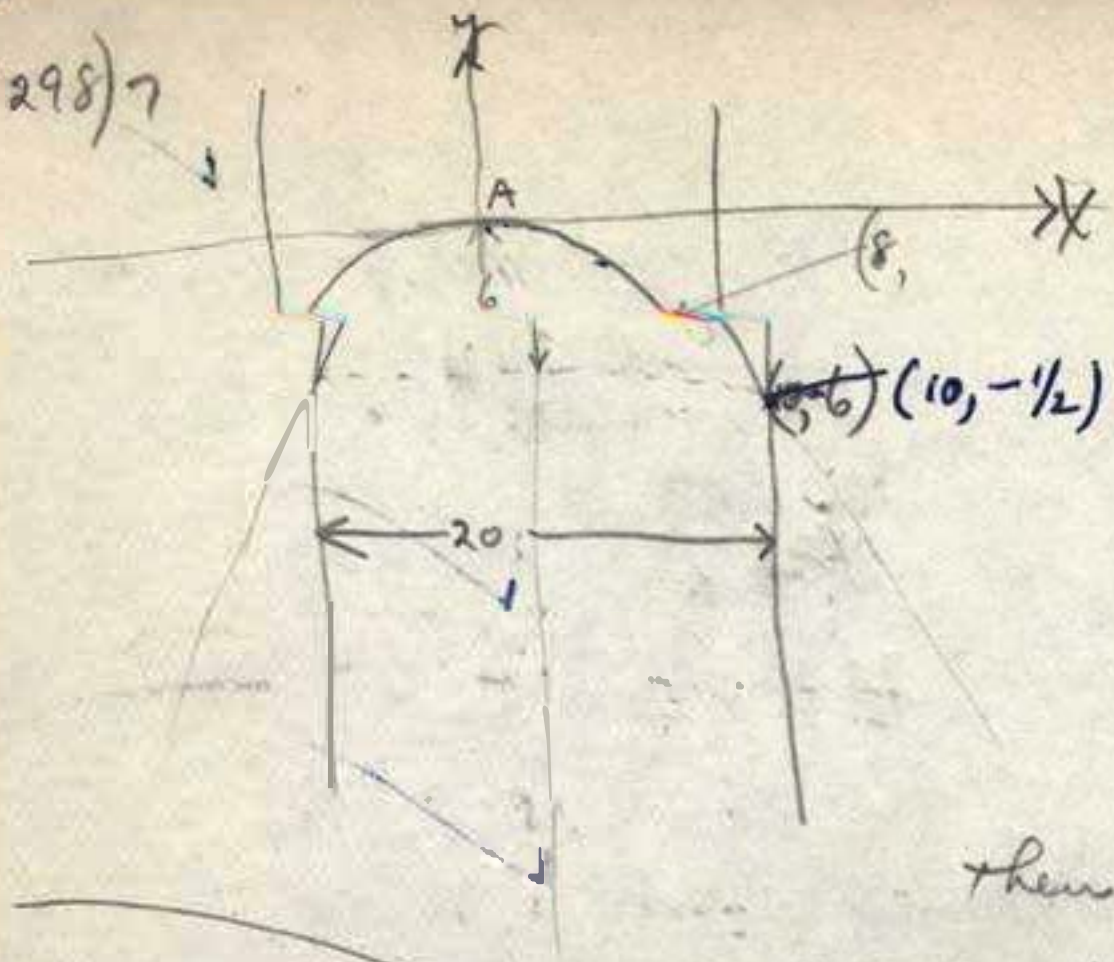 298) 7
Y
A
X
(8,
6
(10, -1/2)
20
then